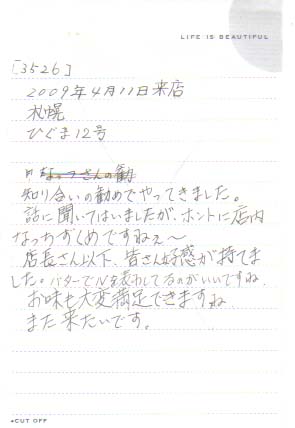 LIFE IS BEAUTIFUL
[3526]
2009年4月11日来店
札幌
ひぐま12号
知り合いの勧めでやってきました。
話に聞いてはいましたが、ホントに店内
なっちずくめですねぇ〜
店長さん以下、皆さん好感が持てま
した。バターでNを表わしてるのがいいですね
お味も大変満足できますね
また来たいです。
•CUT OFF